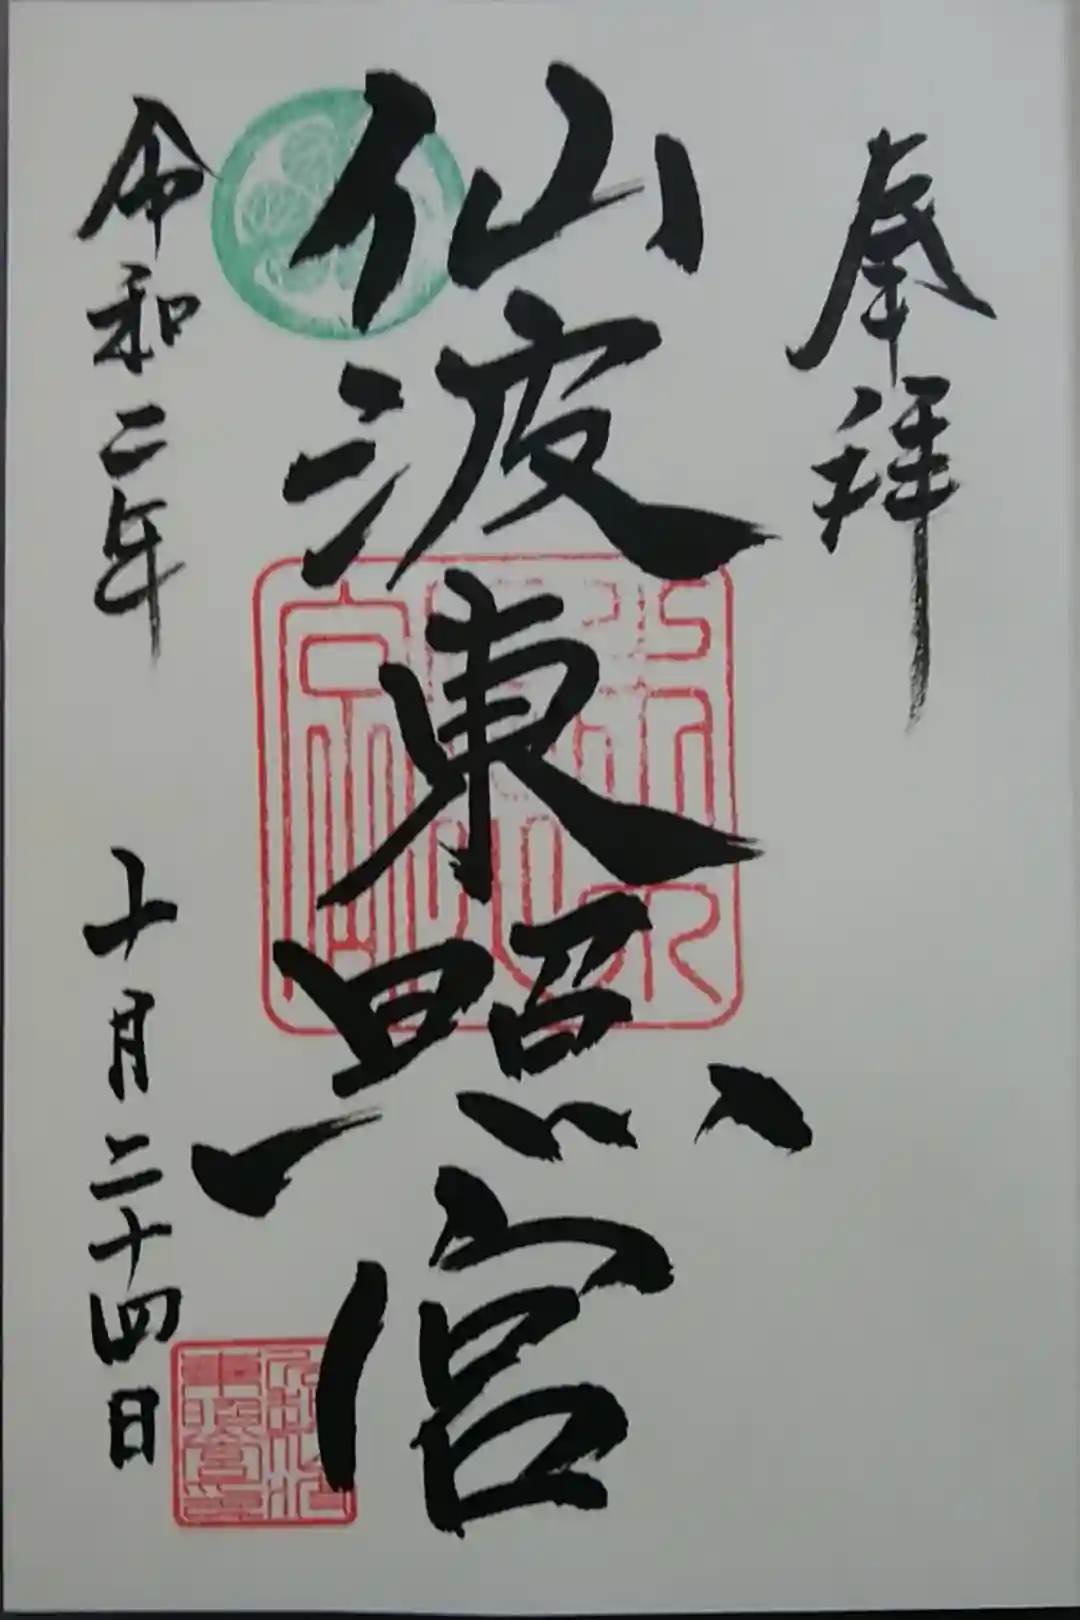 奉拝
仙波東照宮
令和二年 十月二十四日